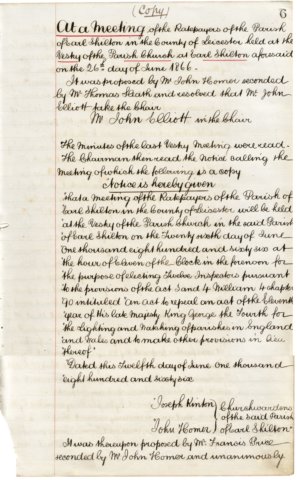 (Copy)
6
At a Meeting of the Ratepayers of the Parish
of Earl Shilton in the County of Leicester held at the
Vestry of the Parish Church at Earl Shilton aforesaid
on the 26th day of June 1866.
It was proposed by Mr John Homer seconded
by Mr Thomas Heath and resolved that Mr John
Elliott take the Chair
Mr John Elliott in the Chair
The Minutes of the last Vestry Meeting were read.
The Chairman then read the Notice calling the
Meeting of which the following is a copy
Notice is hereby given
that a Meeting of the Ratepayers of the Parish of
Earl Shilton in the County of Leicester will be held
at the Vestry of the Parish Church in the said Parish
of Earl Shilton on the Twenty sixth day of June
One thousand eight hundred and sixty six at
the hour of Eleven of the Clock in the forenoon for
the purpose of electing Twelve Inspectors pursuant
to the provisions of the act 3 and 4 William 4 chapter
90 intituled "An act to repeal an act of the Eleventh
year of His late Majesty King George the Fourth for
the Lighting and Watching of parishes in England
and Wales and to make other provisions in lieu
thereof"
Dated this Twelfth day of June One thousand
eight hundred and sixty six
Joseph Hinton
Churchwardens
of the said Parish
John Homer
of Earl Shilton
It was thereupon proposed by Mr. Francis
seconded by Mr John Homer and unanimously